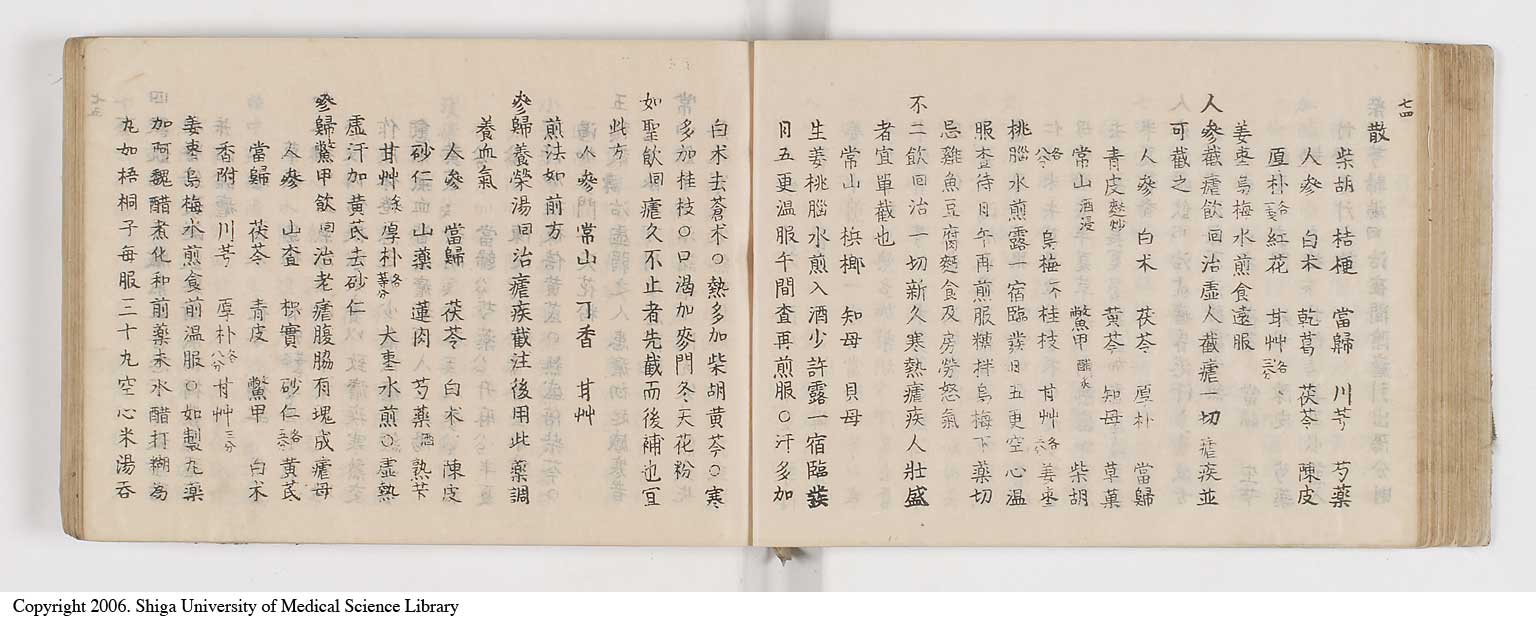 七四
散
柴胡 桔梗 當歸 川芎 芍藥
人參 白术 乾葛 茯苓 陳皮
厚朴各五分 紅花 甘艸各三分
姜枣烏梅水煎食遠服
人參截瘧飲 回治虛人截瘧一切瘧疾並
可截之
人參 白术 茯苓 厚朴 當歸
青皮麩炒 黄芩 知母 草菓
常山酒浸 鱉甲醋炙 柴胡
各八分 烏梅一个 桂枝 甘艸各三分 姜枣
桃膃水煎露一宿臨發日五更空心温
服査待日午再煎服糖拌烏梅下藥切
忌雞魚豆腐麪食及房勞怒氣
不二飲 回治一切新久寒熱瘧疾人壯盛
者宜單截也
常山 槟榔一 知母 貝母
生姜桃膃水煎入酒少許露一宿臨發
日五更温服午間査再煎服○汗多加
白术去蒼术○熱多加柴胡黄芩○寒
多加桂枝○口渴加麥門冬天花粉
如聖飲 回瘧久不止者先截而後補也宜
此方
人參 常山 丁香 甘艸
煎法如前方
參歸養榮湯 回治瘧疾截注後用此藥調
養血氣
人參 當歸 茯苓 白术 陳皮
砂仁 山藥 蓮肉 芍藥酒 熟苄
甘艸 厚朴各等分 大枣水煎○虛熱
虛汗加黄芪去砂仁
參歸鱉甲飲 回治老瘧腹脇有塊成瘧母
人參 山査 枳實 砂仁 黄芪
當歸 茯苓 青皮 鱉甲 白术
香附 川芎 厚朴各八分 甘艸三分
姜枣烏梅水煎食前温服○如製丸藥
加阿魏醋煮化和前藥末水醋打糊為
丸如梧桐子每服三十九空心米湯吞
七五